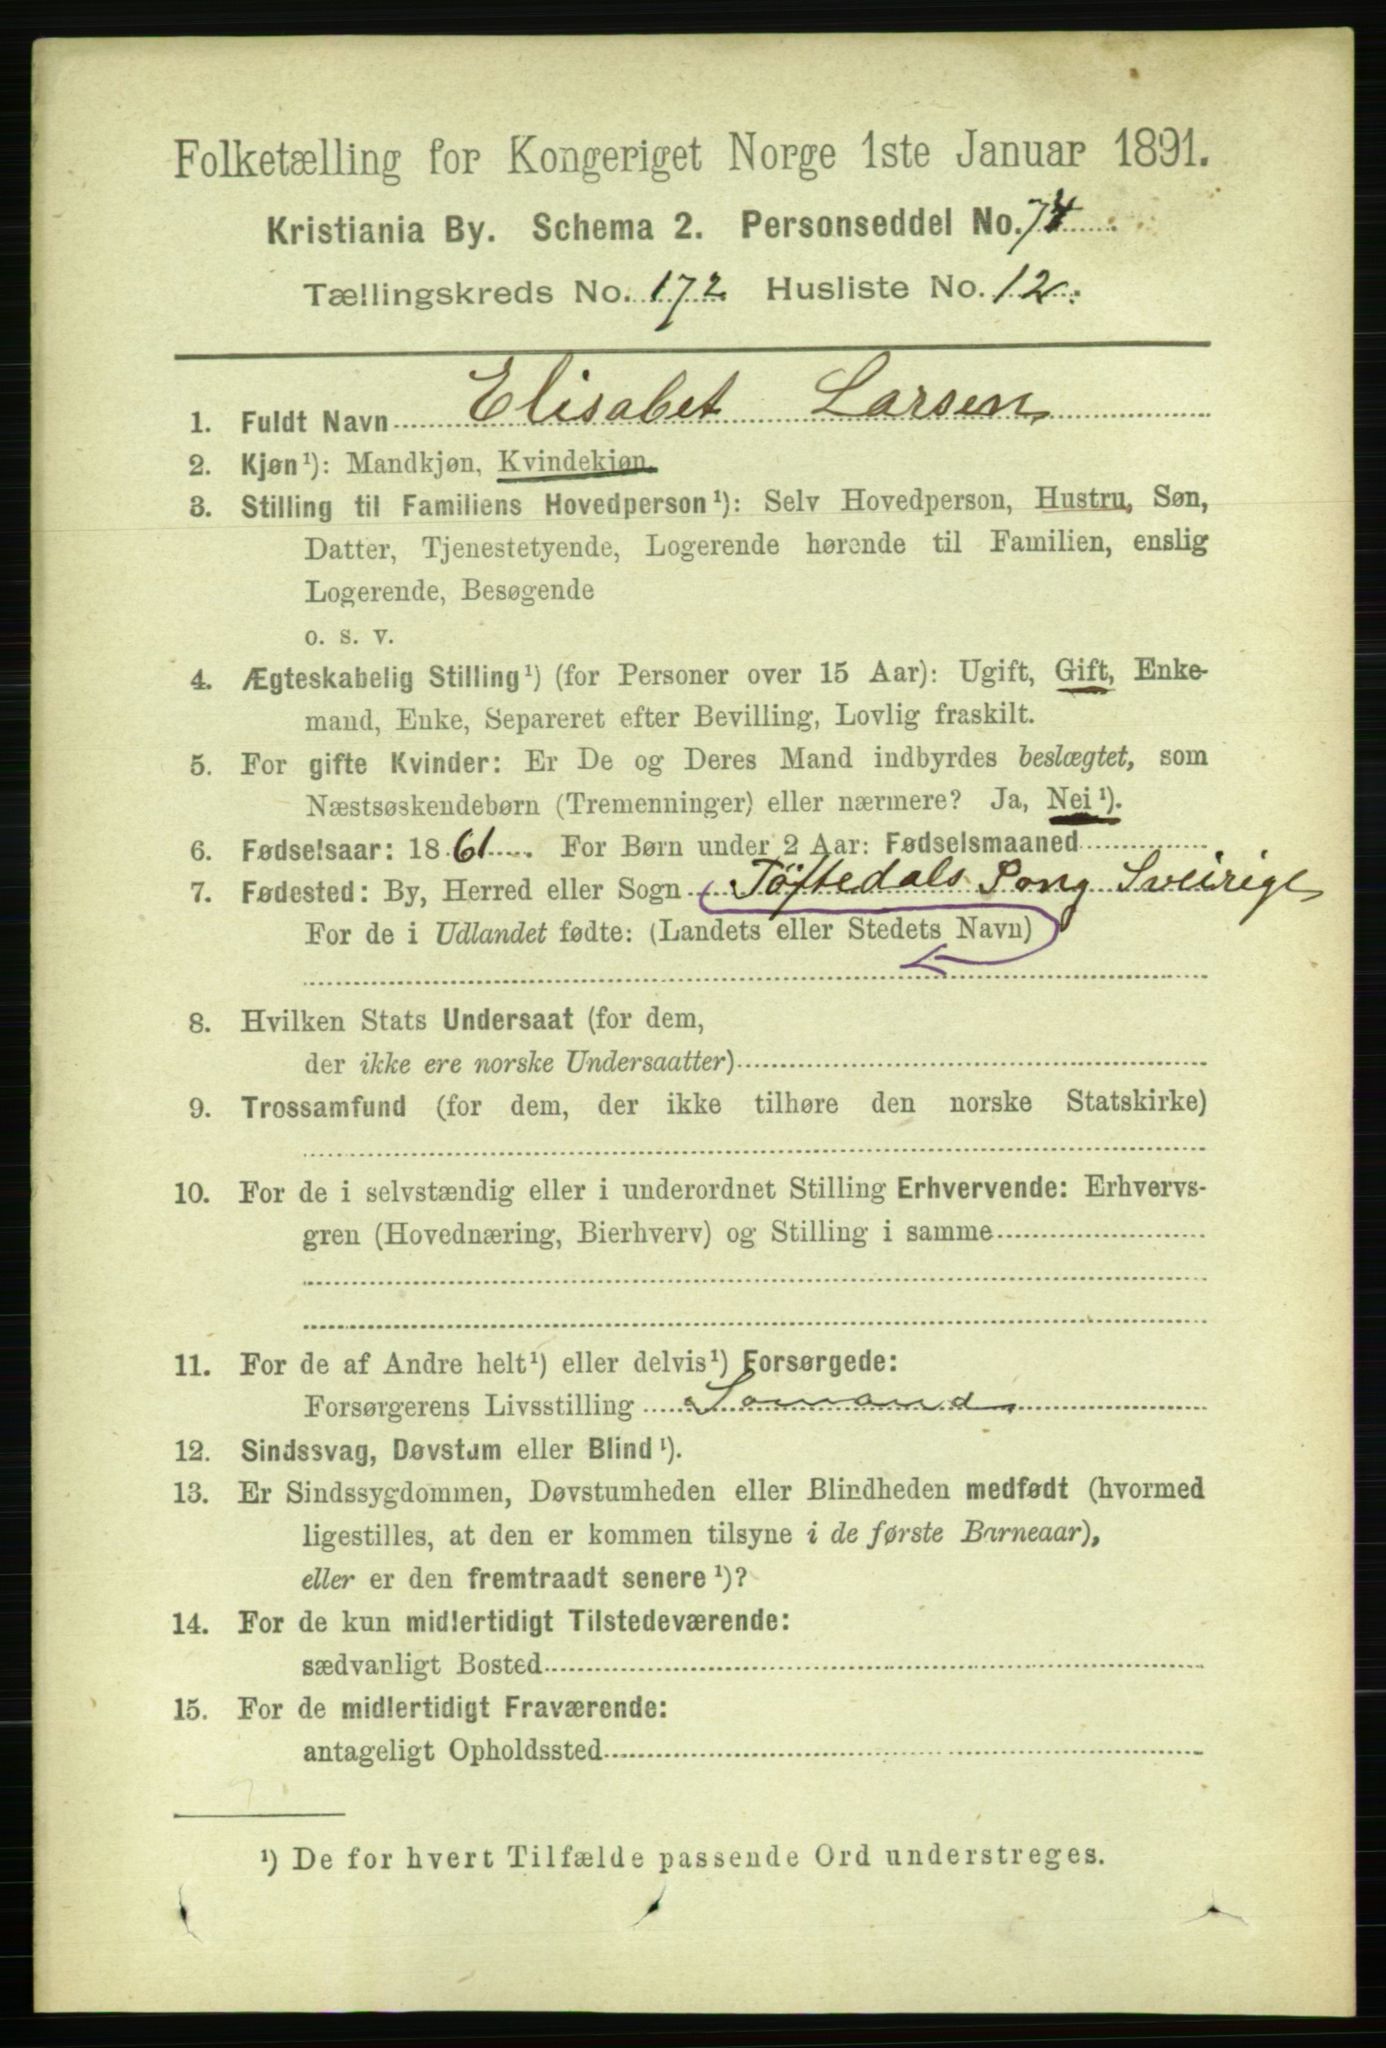 Folketælling for Kongeriget Norge 1ste Januar 1891.
Kristiania By. Schema 2. Personseddel No. 74
Tællingskreds No. 172 Husliste No. 12.
1. Fuldt Navn Elisabet Larsen
2. Kjøn¹): Mandkjøn, Kvindekjøn.
3. Stilling til Familiens Hovedperson¹): Selv Hovedperson, Hustru, Søn,
Datter, Tjenestetyende, Logerende hørende til Familien, enslig
Logerende, Besøgende
o. s. v.
4. Ægteskabelig Stilling¹) (for Personer over 15 Aar): Ugift, Gift, Enke-
mand, Enke, Separeret efter Bevilling, Lovlig fraskilt.
5. For gifte Kvinder: Er De og Deres Mand indbyrdes beslægtet, som
Næstsøskendebørn (Tremenninger) eller nærmere? Ja, Nei¹).
6. Fødselsaar: 1861. For Børn under 2 Aar: Fødselsmaaned
7. Fødested: By, Herred eller Sogn Töftedals Sveirige
For de i Udlandet fødte: (Landets eller Stedets Navn)
8. Hvilken Stats Undersaat (for dem,
der ikke ere norske Undersaatter)
9. Trossamfund (for dem, der ikke tilhøre den norske Statskirke)
10. For de i selvstændig eller i underordnet Stilling Erhvervende: Erhvervs-
gren (Hovednæring, Bierhverv) og Stilling i samme
11. For de af Andre helt¹) eller delvis¹) Forsørgede:
Forsørgerens Livsstilling Somand
12. Sindssvag, Døvstum eller Blind¹).
13. Er Sindssygdommen, Døvstumheden eller Blindheden medfødt (hvormed
ligestilles, at den er kommen tilsyne i de første Barneaar),
eller er den fremtraadt senere¹)?
14. For de kun midlertidigt Tilstedeværende:
sædvanligt Bosted
15. For de midlertidigt Fraværende:
antageligt Opholdssted
¹) De for hvert Tilfælde passende Ord understreges.